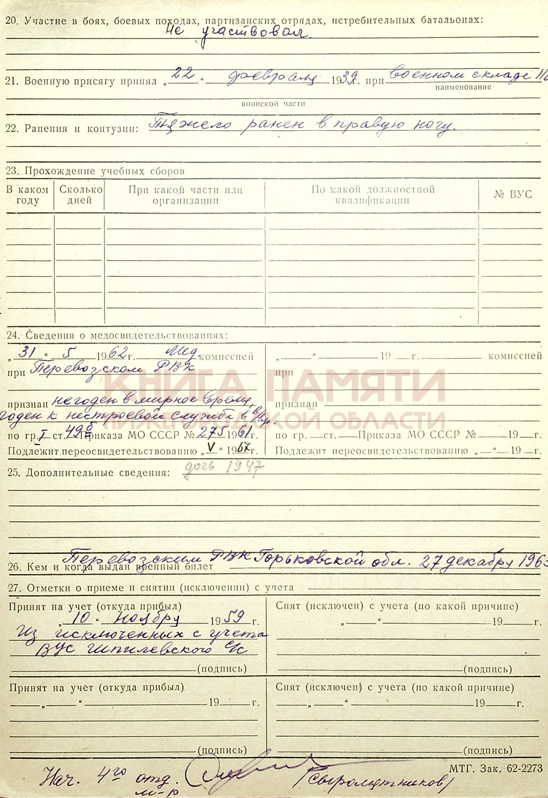 20. Участие в боях, боевых походах, партизанских отрядах, истребительных батальонах:
Не участвовал.
21. Военную присягу принял „22“ февраля 1939г. при военном складе
наименование
воинской части
22. Ранения и контузии: Тяжело ранен в правую ногу.
23. Прохождение учебных сборов
В каком году Сколько дней При какой части или организации По какой должностной квалификации № ВУС
24. Сведения о медосвидетельствованиях:
„31“ 5 1962г. Мед комиссией
при Перевозском РВК
признан негоден в мирное время,
годен к нестроевой службе в в/вр.
по гр. I ст. 49б Приказа МО СССР № 275 1961г.
Подлежит переосвидетельствованию „ V “ 1967г.
„ — “ 19 — г. комиссией
при
признан
по гр. — ст. — Приказа МО СССР № — 19 — г.
Подлежит переосвидетельствованию „ — “ 19 — г.
25. Дополнительные сведения: дочь 1947
КНИГА ПАМЯТИ
НИЖЕГОРОДСКОЙ ОБЛАСТИ
26. Кем и когда выдан военный билет Перевозским РВК Горьковской обл. 27 декабря 1963
27. Отметки о приеме и снятии (исключении) с учета
Принят на учет (откуда прибыл)
„10“ ноября 1959г.
Из исключенных с учета
ВУС Шпилевского с/с
(подпись)
Снят (исключен) с учета (по какой причине)
(подпись)
Принят на учет (откуда прибыл)
„ — “ 19 — г.
(подпись)
Снят (исключен) с учета (по какой причине)
„ — “ 19 — г.
(подпись)
МТГ. Зак. 62-2273
Нач. 4го отд.
м-р
(Сыромятников)